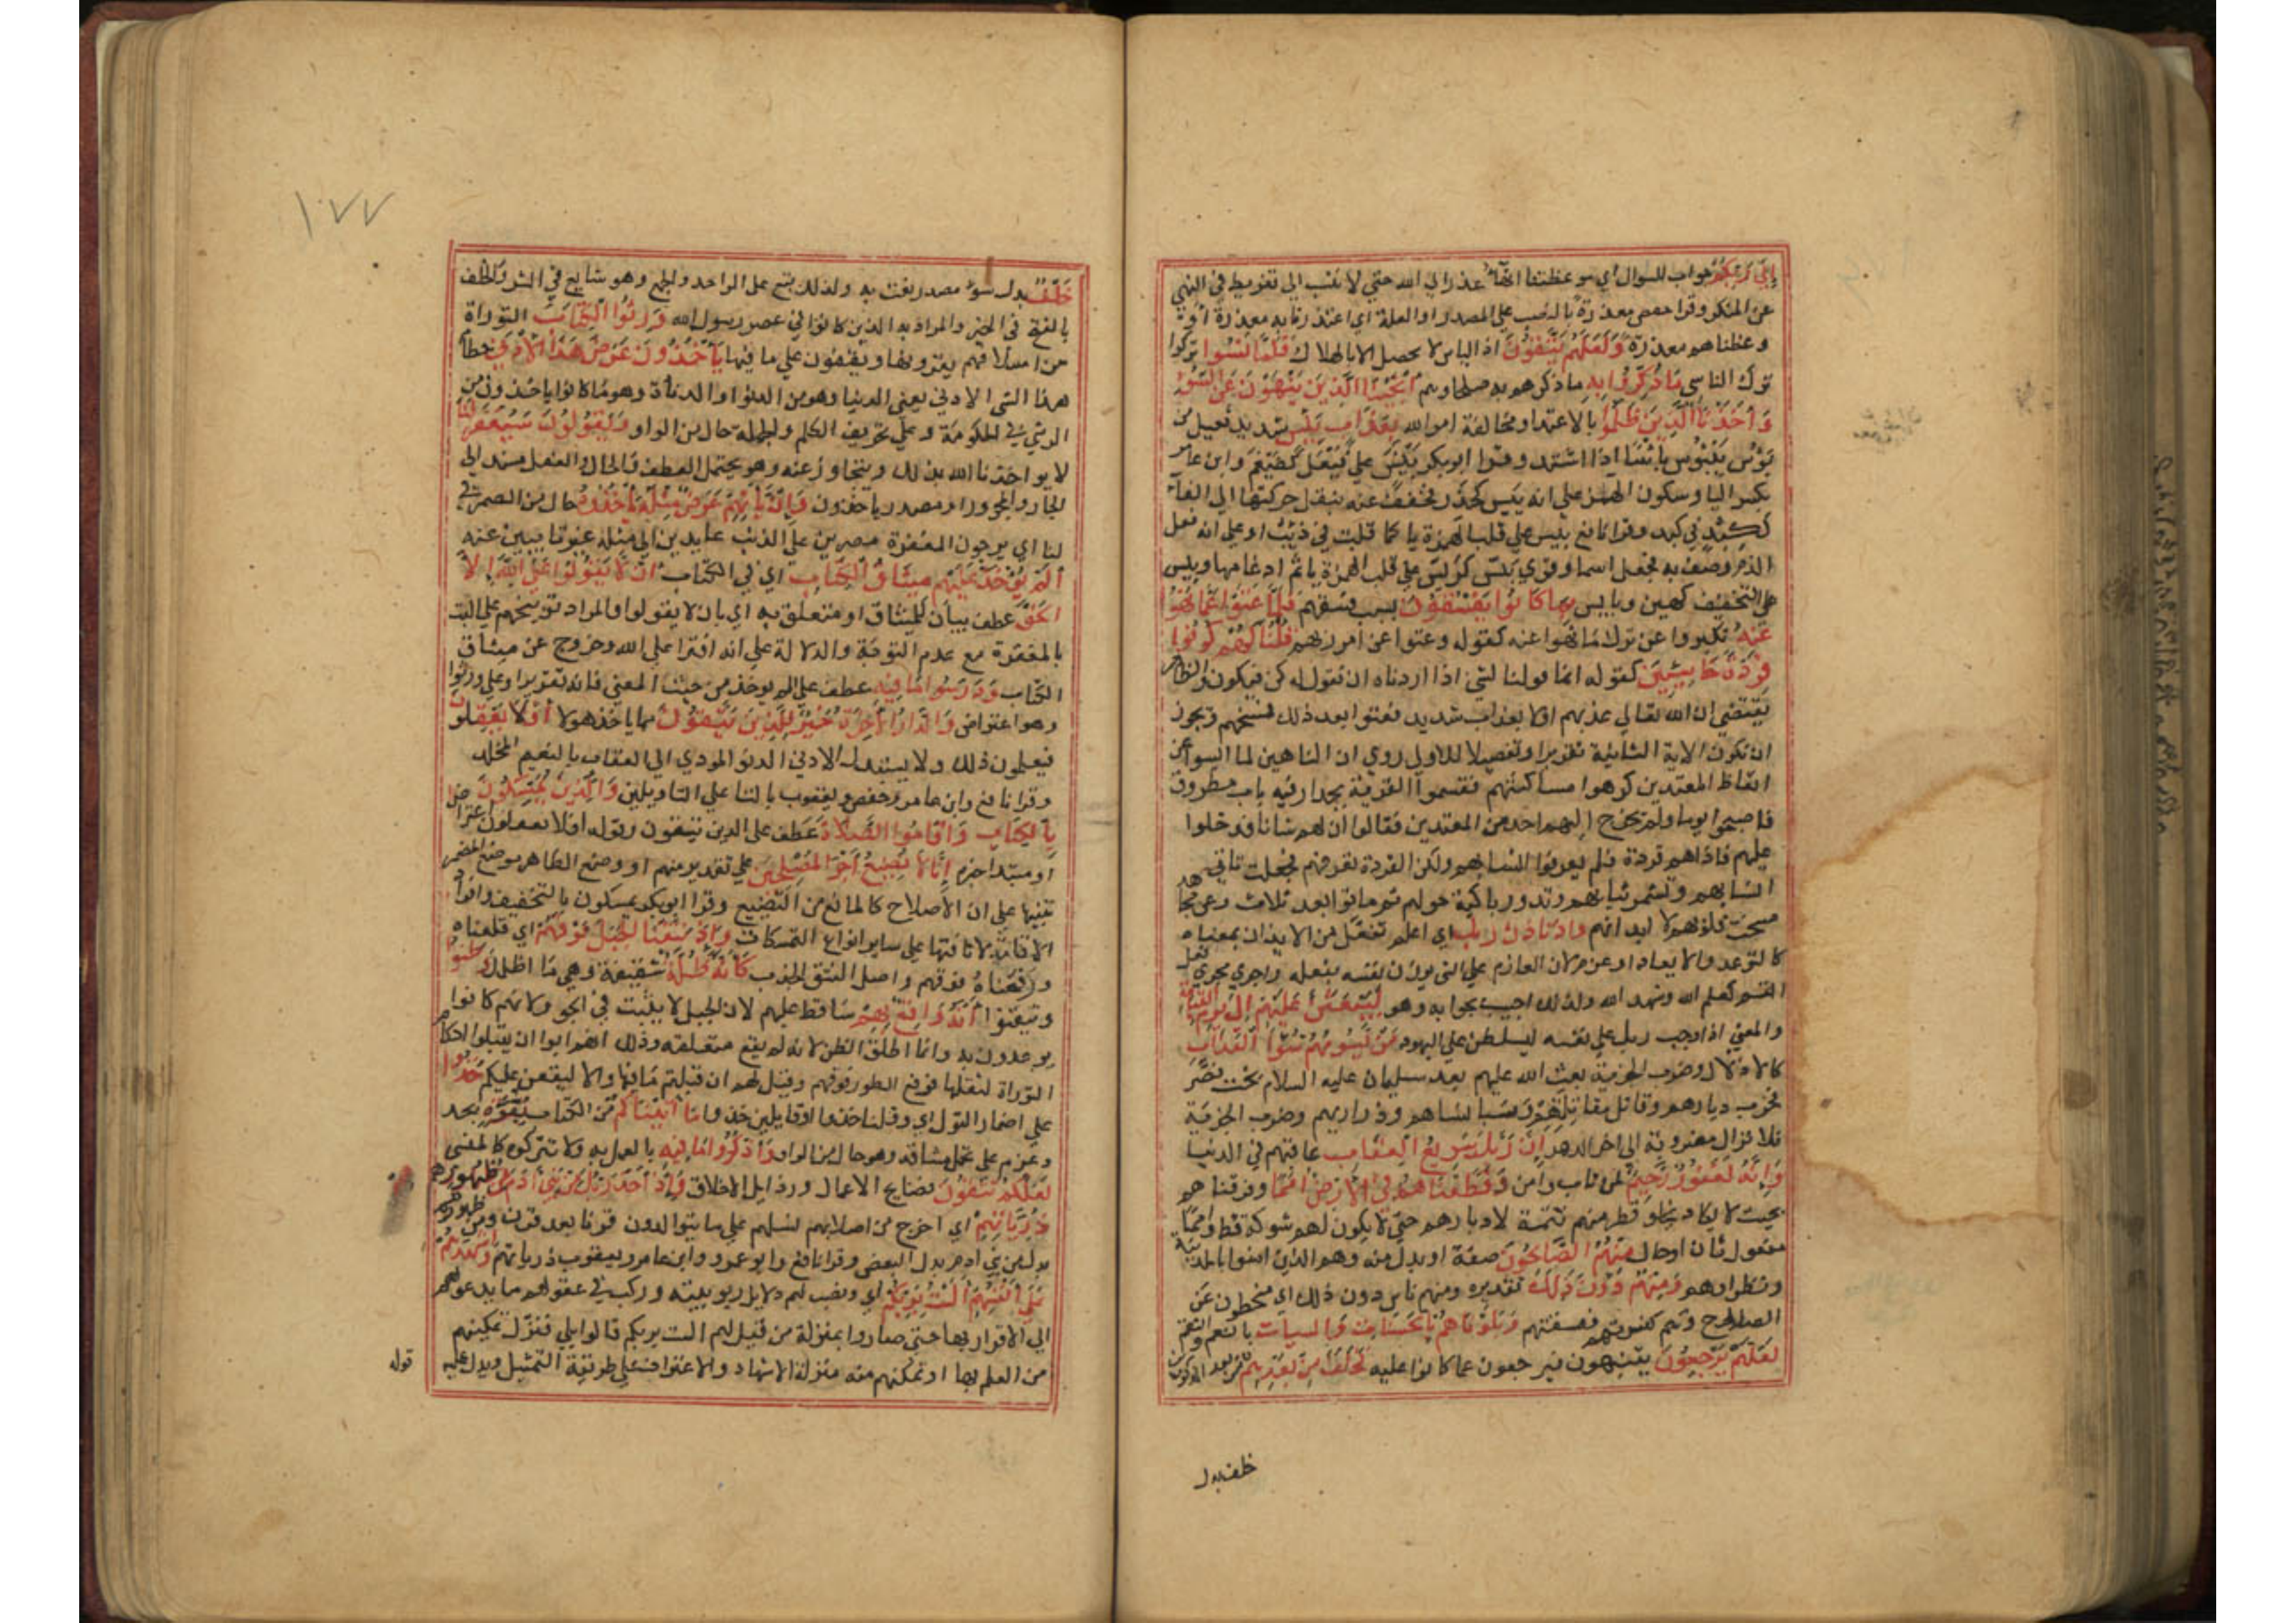 إلى ربكم جواب للسوال أي موعظتنا انهاء عذر الي الله حتي لا ننسب الي تفريط في النهي
عن المنكر وقرا حفص معذرة بالنصب علي المصدر او العلة اي اعتذرنا به معذرة او
وعظناهم معذرة ولعلهم يتقون اذ الياس لا يحصل الا بالهلاك فلما نسوا تركوا
ترك الناسي ما ذكروا به ما ذكرهم به صلحاوهم انجينا الذين ينهون عن السوء
واخذنا الذين ظلموا بالاعتدا ومخالفة امر الله بعذاب بئيس شديد فعيل من
بؤس يبؤس باسا اذا اشتد وقرا ابو بكر بيئس علي فيعل كضيغم وابن عامر
بكسر البا وسكون الهمز علي انه بئس كحذر فخفف عنه بنقل حركتها الي الفاء
ككبد في كبد وقرا نافع بيس علي قلب الهمزة يا كما قلبت في ذيب او علي انه فعل
الذم وصف به فجعل اسما وقري بيس كريس علي قلب الهمزة يا ثم ادغامها وبيس
علي التخفيف كهين وبايس بما كانوا يفسقون بسبب فسقهم فلما عتوا عما نهوا
عنه تكبروا عن ترك ما نهوا عنه كقوله وعتوا عن امر ربهم قلنا لهم كونوا
قردة خاسئين كقوله انما قولنا لشي اذا اردناه ان نقول له كن فيكون والظاهر
يقتضي ان الله تعالي عذبهم اولا بعذاب شديد فعتوا بعد ذلك فمسخهم ويجوز
ان تكون الاية الثانية تقريرا وتفصيلا للاولي روي ان الناهين لما ايسوا عن
اتعاظ المعتدين كرهوا مساكنتهم فقسموا القرية بجدار فيه باب مطروق
فاصبحوا يوما ولم يخرج اليهم احد من المعتدين فقالوا ان لهم شانا فدخلوا
عليهم فاذا هم قردة فلم يعرفوا انسابهم ولكن القردة تعرفهم فجعلت تاتي
انسابهم وتشم ثيابهم وتدور باكية حولهم ثم ماتوا بعد ثلاث وعن مجاهد
مسخت قلوبهم لا ابدانهم واذ تاذن ربك اي اعلم تفعل من الايذان بمعناه
كالتوعد والايعاد او عزم لان العازم علي الشي يوذن نفسه بفعله واجري مجري فعل
القسم كعلم الله وشهد الله ولذلك اجيب بجوابه وهو ليبعثن عليهم الى يوم القيامة
والمعني اذ اوجب ربك علي نفسه ليسلطن علي اليهود من يسومهم سوء العذاب
كالاذلال وضرب الجزية بعث الله عليهم بعد سليمان عليه السلام بخت نصر
فخرب ديارهم وقاتل مقاتلتهم وسبا نساهم وذراريهم وضرب الجزية
فلا تزال مضروبة الي اخر الدهر ان ربك لسريع العقاب عاقبهم في الدنيا
وانه لغفور رحيم لمن تاب وامن وقطعناهم في الارض امما وفرقناهم
بحيث لا يكاد يخلو قطر منهم تتمة لادبارهم حتي لا يكون لهم شوكة قط وامما
مفعول ثان او حال منهم الصالحون صفة او بدل منه وهم الذين امنوا بالمدينة
ونظراوهم ومنهم دون ذلك تقديره ومنهم ناس دون ذلك اي منحطون عن
الصلاح وهم كفرتهم وفسقتهم وبلوناهم بالحسنات والسيات بالنعم والنقم
لعلهم يرجعون ينتبهون فيرجعون عما كانوا عليه فخلف من بعدهم من بعد المذكورين
خلف بدل
١٧٧
خلف بدل سوء مصدر نعت به ولذلك يقع علي الواحد والجمع وهو شايع في الشر والخلف
بالفتح في الخير والمراد به الذين كانوا في عصر رسول الله ورثوا الكتاب التوراة
من اسلافهم يقرونها ويقفون علي ما فيها ياخذون عرض هذا الادني حطام
هذا الشي الادني يعني الدنيا وهو من الدنو او الدناة وهو ما كانوا ياخذون من
الرشي في الحكومة وعلي تحريف الكلم والجملة حال من الواو ويقولون سيغفر لنا
لا يواخذنا الله بذلك ويتجاوز عنه وهو يحتمل العطف والحال والفعل مسند الي
الجار والمجرور او مصدر ياخذون وان ياتهم عرض مثله ياخذوه حال من الضمير في
لنا اي يرجون المغفرة مصرين علي الذنب عايدين الي مثله غير تايبين عنه
الم يؤخذ عليهم ميثاق الكتاب اي في الكتاب ان لا يقولوا على الله الا
الحق عطف بيان للميثاق او متعلق به اي بان لا يقولوا والمراد توبيخهم علي البت
بالمغفرة مع عدم التوبة والدلالة علي انه افترا علي الله وخروج عن ميثاق
الكتاب ودرسوا ما فيه عطف علي الم يوخذ من حيث المعني فانه تقرير او علي ورثوا
وهو اعتراض والدار الاخرة خير للذين يتقون مما ياخذ هولا افلا يعقلون
فيعلمون ذلك ولا يستبدلوا الادني الدني المودي الي العقاب بالنعيم المخلد
وقرا نافع وابن عامر وحفص ويعقوب بالتا علي التلوين والذين يمسكون
بالكتاب واقاموا الصلاة عطف علي الذين يتقون وقوله افلا يعقلون اعتراض
او مبتدا خبره انا لا نضيع اجر المصلحين علي تقدير منهم او وضع الظاهر موضع المضمر
تنبيها علي ان الاصلاح كالمانع من التضييع وقرا ابو بكر يمسكون بالتخفيف وافراد
الاقامة لانافتها علي ساير انواع التمسكات واذ نتقنا الجبل فوقهم اي قلعناه
ورفعناه فوقهم واصل النتق الجذب كانه ظلة سقيفة وهي ما اظلك وظنوا
وتيقنوا انه واقع بهم ساقط عليهم لان الجبل لا يثبت في الجو ولانهم كانوا
يوعدون به وانما اطلق الظن لانه لم يقع متعلقه وذلك انهم ابوا ان يقبلوا احكام
التوراة لثقلها فرفع الطور فوقهم وقيل لهم ان قبلتم ما فيها والا ليقعن عليكم خذوا
علي اضمار القول اي وقلنا خذوا او قايلين خذوا ما اتيناكم من الكتاب بقوة بجد
وعزم علي تحمل مشاقه وهو حال من الواو واذكروا ما فيه بالعمل به ولا تتركوه كالمنسي
لعلكم تتقون قبايح الاعمال ورذايل الاخلاق واذ اخذ ربك من بني ادم من ظهورهم
ذرياتهم اي اخرج من اصلابهم نسلهم علي ما يتوالدون قرنا بعد قرن ومن ظهورهم
بدل من بني ادم بدل البعض وقرا نافع وابو عمرو وابن عامر ويعقوب ذرياتهم واشهدهم
على انفسهم الست بربكم اي ونصب لهم دلايل ربوبيته وركب في عقولهم ما يدعوهم
الي الاقرار بها حتي صاروا بمنزلة من قيل لهم الست بربكم قالوا بلي فنزل تمكينهم
من العلم بها او تمكنهم منه منزلة الاشهاد والاعتراف علي طريقة التمثيل ويدل عليه
قوله